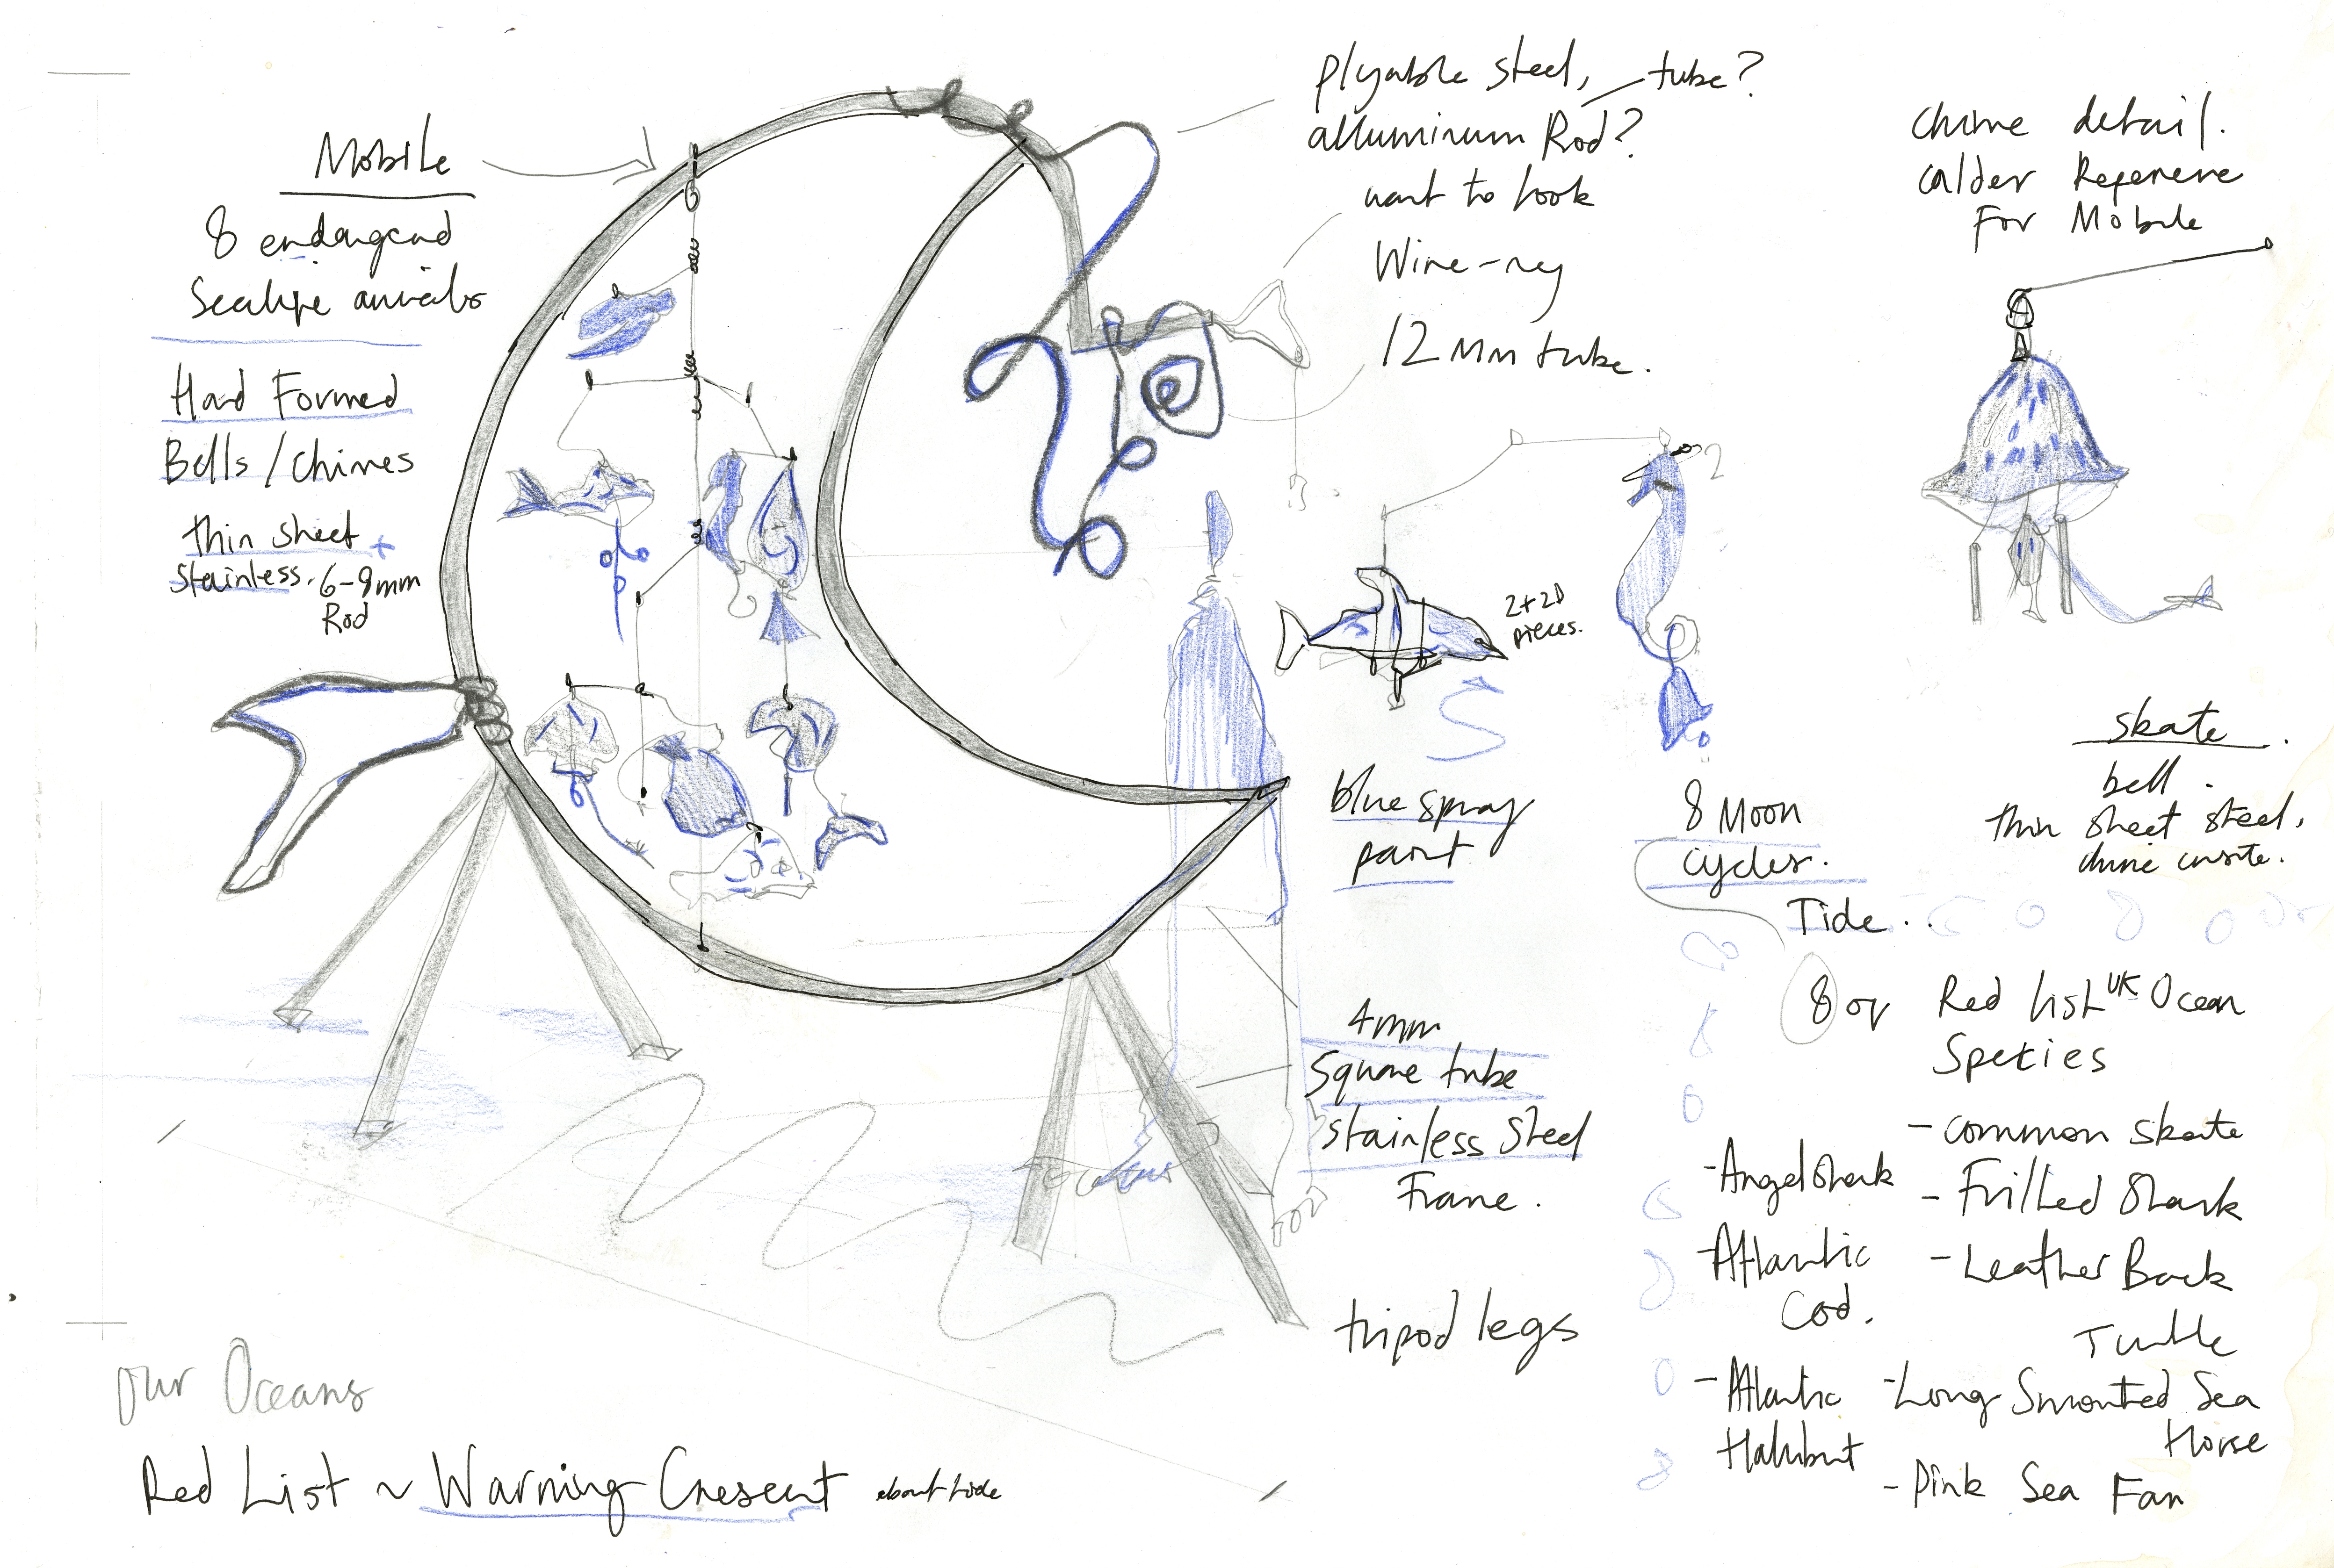 Mobile
8 endangerd
Sealife animals
Hand Formed
Bells/Chimes
thin sheet +
Stainless. 6-8mm
Rod
plyable steel, tube?
alluminum Rod?
want to look
Wire-rey
12 mm tube.
chime detail.
calder Reference
For Mobile
2+2D
pieces.
blue spray
paint
8 Moon
cycles.
Tide..
skate.
bell.
thin sheet steel,
chime insite.
4mm
Square tube
stainless steel
Frame.
tripod legs
8 of Red list UK Ocean
Species
- common skate
- Frilled Shark
- Leather Back
Turtle
- Long Snouted Sea
Horse
- Pink Sea Fan
- Angel Shark
- Atlantic
Cod.
- Atlantic
Halibut
our Oceans
Red List ~ Warning Cresent about tide